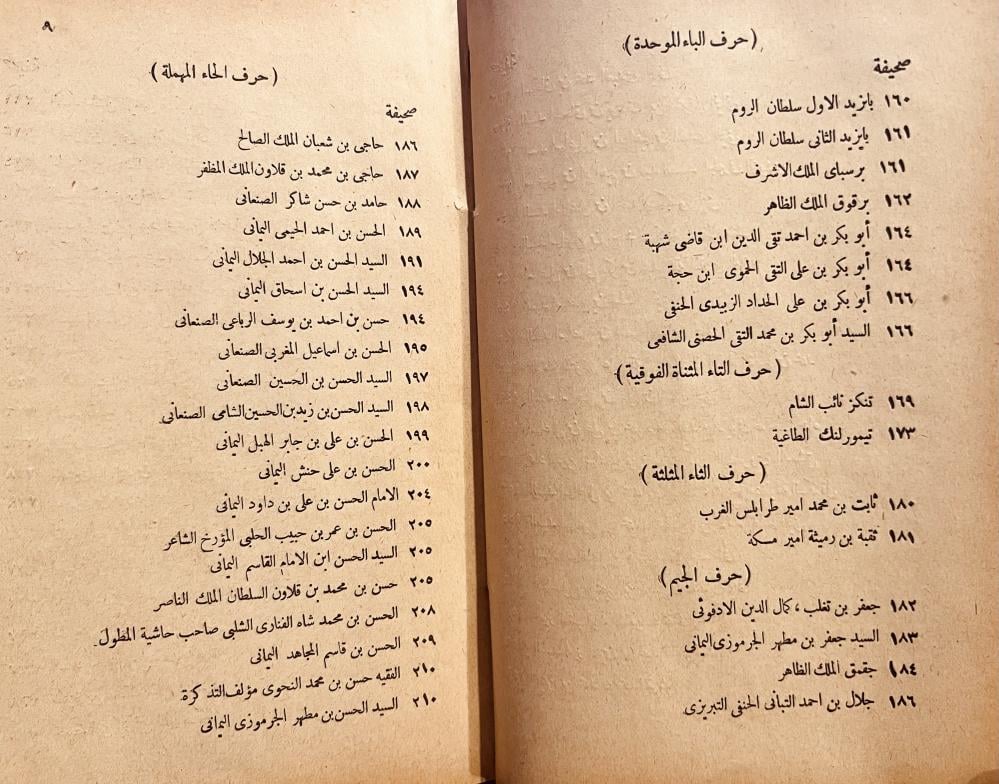 (حرف الباء الموحدة)
صحيفة
١٦٠ بايزيد الاول سلطان الروم
١٦١ بايزيد الثانى سلطان الروم
١٦١ برسباى الملك الاشرف
١٦٢ برقوق الملك الظاهر
١٦٤ أبو بكر بن احمد تقى الدين ابن قاضى شهبة
١٦٤ أبو بكر بن على التقى الحموى ابن حجة
١٦٦ أبو بكر بن على الحداد الزبيدى الحنفى
١٦٦ السيد أبو بكر بن محمد التقى الحصنى الشافعى
(حرف التاء المثناة الفوقية)
١٦٩ تنكز نائب الشام
١٧٣ تيمورلنك الطاغية
(حرف الثاء المثلثة)
١٨٠ ثابت بن محمد امير طرابلس الغرب
١٨١ ثقبة بن رميثة امير مكة
(حرف الجيم)
١٨٢ جعفر بن تغلب، كمال الدين الادفوئى
١٨٣ السيد جعفر بن مطهر الجرموزى اليمانى
١٨٤ جقمق الملك الظاهر
١٨٦ جلال بن احمد التبانى الحنفى التبريزى
٩
(حرف الحاء المهملة)
صحيفة
١٨٦ حاجى بن شعبان الملك الصالح
١٨٧ حاجى بن محمد بن قلاون الملك المظفر
١٨٨ حامد بن حسن شاكر الصنعانى
١٨٩ الحسن بن احمد الحيمى اليمانى
١٩١ السيد الحسن بن احمد الجلال اليمانى
١٩٤ السيد الحسن بن اسحاق اليمانى
١٩٤ حسن بن احمد بن يوسف الرباعى الصنعانى
١٩٥ الحسن بن اسماعيل المغربى الصنعانى
١٩٧ السيد الحسن بن الحسين الصنعانى
١٩٨ السيد الحسن بن زيد بن الحسين الشامى الصنعانى
١٩٩ الحسن بن على بن جابر الهبل اليمانى
٢٠٠ الحسن بن على حنش اليمانى
٢٠٤ الامام الحسن بن على بن داود اليمانى
٢٠٥ الحسن بن عمر بن حبيب الحلبى المؤرخ الشاعر
٢٠٥ السيد الحسن ابن الامام القاسم اليمانى
٢٠٥ حسن بن محمد بن قلاون السلطان الملك الناصر
٢٠٨ الحسن بن محمد شاه الفنارى الشلبى صاحب حاشية المطول.
٢٠٩ الحسن بن قاسم المجاهد اليمانى
٢١٠ الفقيه حسن بن محمد النحوى مؤلف التذكرة.
٢١٠ السيد الحسن بن مطهر الجرموزى اليمانى